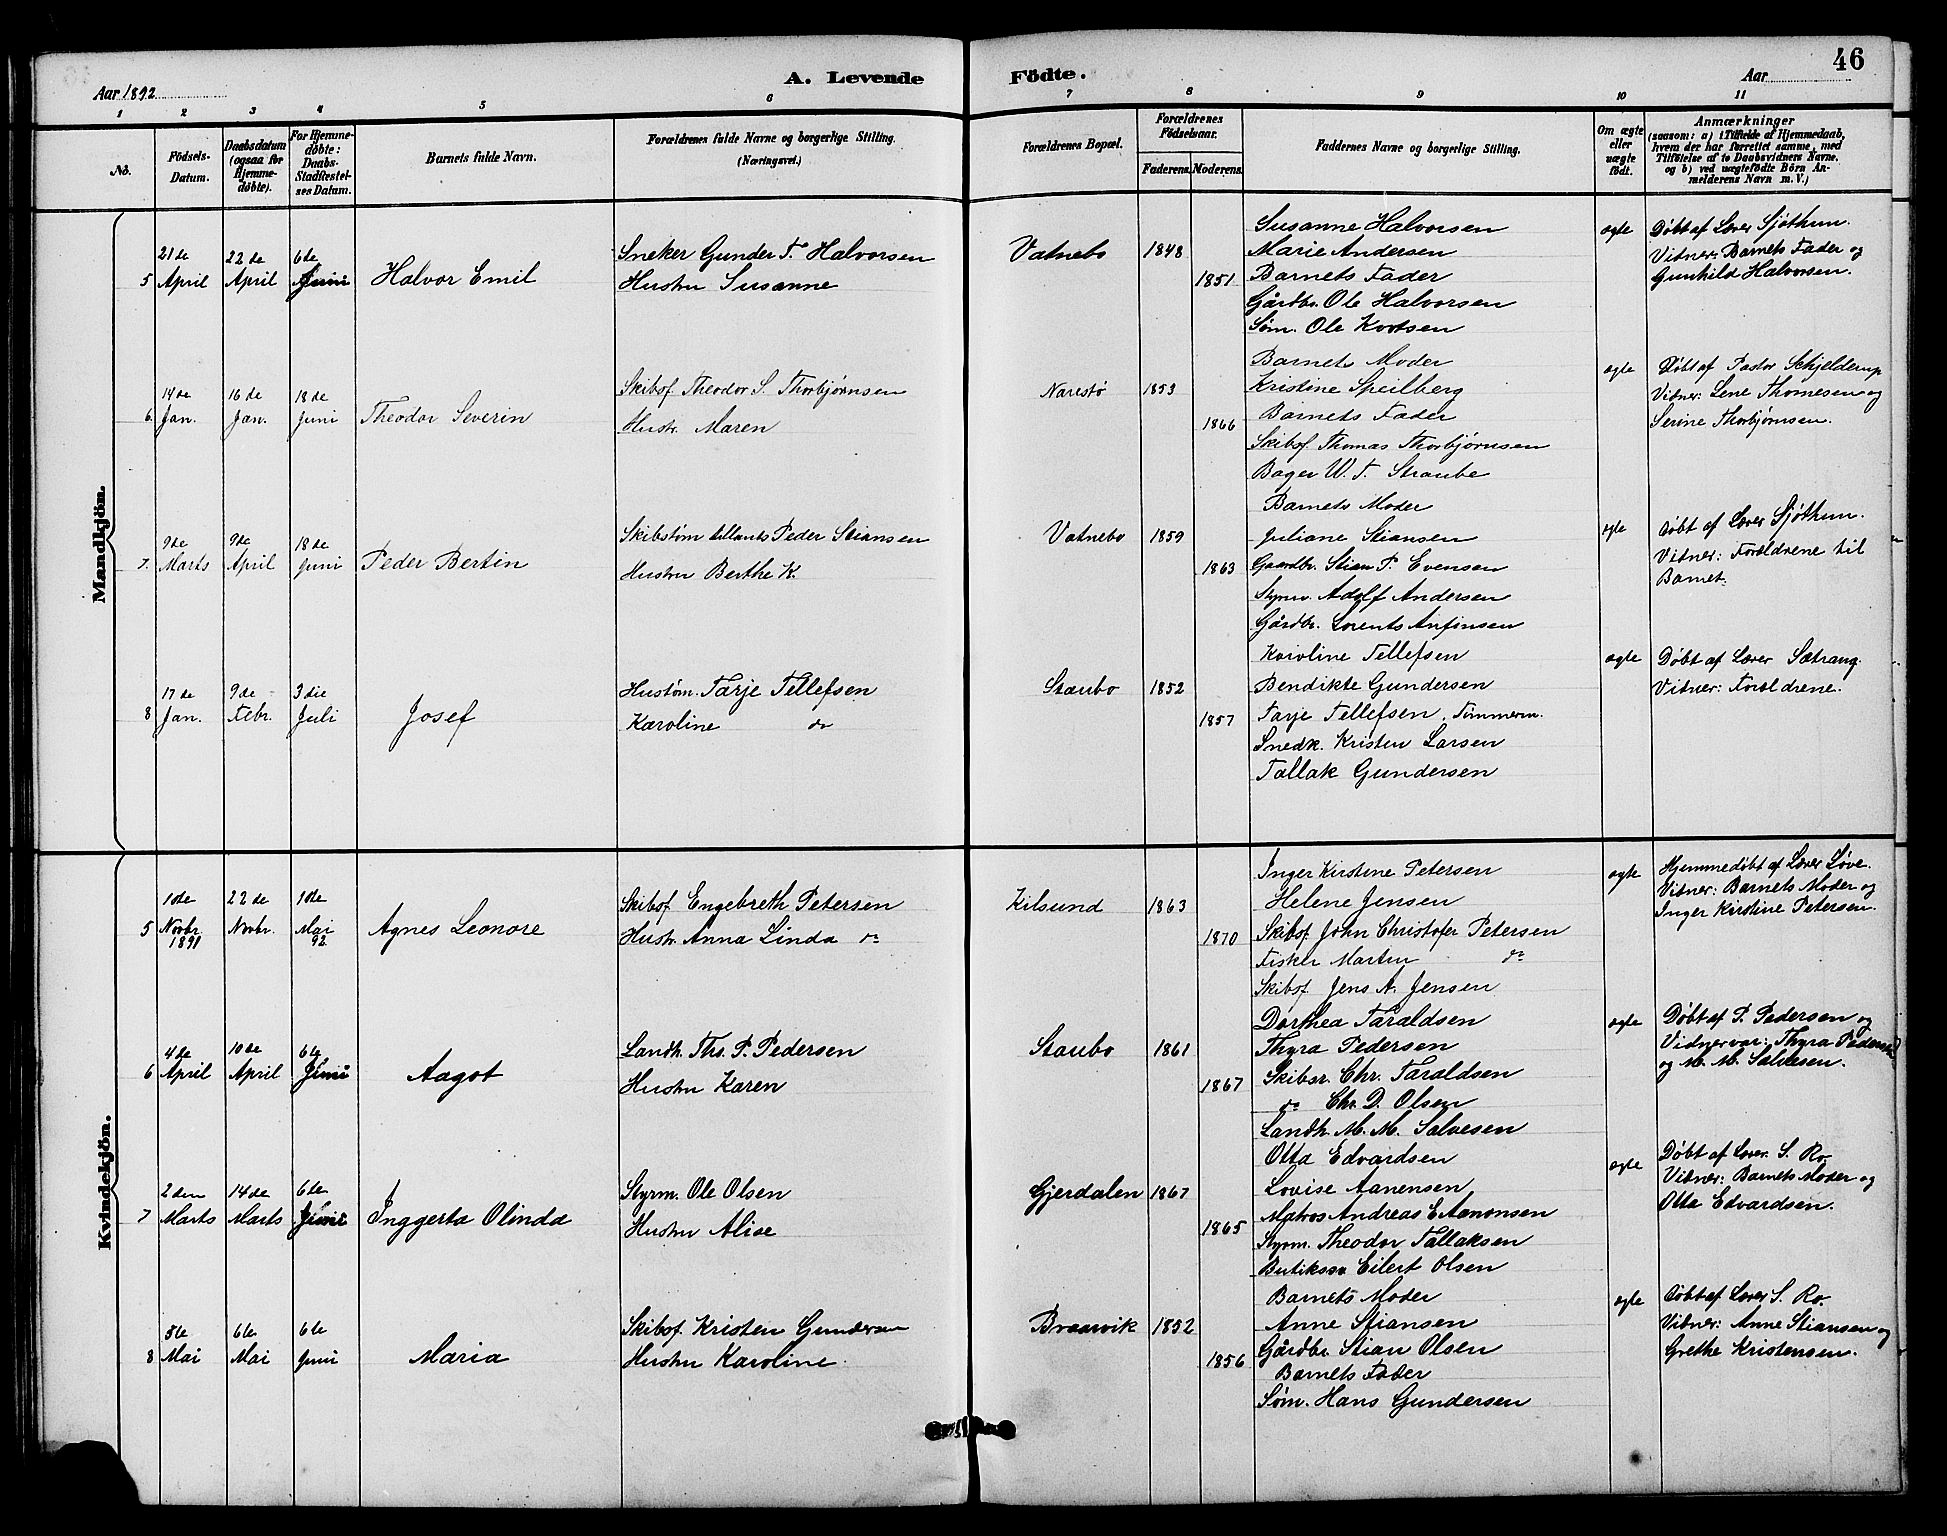 46
A. Levende Födte.
Aar 1892
Aar
1 2 3 4 5 6 7 8 9 10 11
No.
Födsels-
Datum.
Daabsdatum
(ogsaa for
Hjemme-
döbte).
For Hjemme-
döbte:
Daabs-
Stadfestel-
ses Datum.
Barnets fulde Navn.
Forældrenes fulde Navne og borgerlige Stilling.
(Næringsvei.)
Forældrenes Bopæl.
Forældrenes
Födselsaar.
Faderens. Moderens.
Faddernes Navne og borgerlige Stilling.
Om ægte
eller
uægte
födt.
Anmærkninger
(saasom: a) i Tilfælde af Hjemmedaab,
hvem der har forrettet samme, med
Tilföielse af to Daabsvidners Navne.
og b) ved uægtefödte Börn An-
melderens Navn m. V.)
Mandkjön.
5
21de
April
22de
April
6te
Juni
Halvor Emil
Sneker Gunder T. Halvorsen
Hustru Susanne
Vatnebo
1848
1851
Susanne Halvorsen
Marie Andersen
Barnets Fader
Gårdbr. Ole Halvorsen
Søm. Ole Knotsen
ægte
Døbt af Lærer Sjøthun.
Vidner: Barnets Fader og
Gunhild Halvorsen.
6.
14de
Jan.
16de
Jan.
18de
Juni
Theodor Severin
Skibsf. Theodor S. Thorbjørnsen
Hustr. Maren
Narestø
1853
1866
Barnets Moder
Kristine Speilberg
Barnets Fader
Skibsf. Thomas Thorbjørnsen
Bager W. T. Straube
ægte
Døbt af Pastor Schjelderup
Vidner: Lene Thomesen og
Serine Thorbjørnsen.
7.
9de
Marts
9de
April
18de
Juni
Peder Bertin
Skibstømmermands Peder Stiansen
Hustru Berthe K.
Vatnebo
1859
1863
Barnets Moder
Juliane Stiansen
Gaardbr. Stian P. Evensen
Styrm. Adolf Andersen
Gårdbr. Lorents Anfinsen
ægte
Døbt af Lærer Sjøthun.
Vidner: Forældrene til
Barnet.
8
17de
Jan.
9de
Febr.
3die
Juli
Josef
Hustøm. Tarje Tellefsen
Karoline do
Staubo
1852
1857
Karoline Tellefsen
Bendikte Gundersen
Tarje Tellefsen, Tømmerm.
Snedk. Kristen Larsen
Tallak Gundersen
ægte
Døbt af Lærer Sætrang.
Vidner: Forældrene.
Kvindekjön.
5
10de
Novbr.
1891
22de
Novbr.
1ste
Mai
92
Agnes Leonore
Skibsf. Engebreth Petersen
Hustr. Anna Linda do
Kilsund
1863
1870
Inger Kirstine Petersen
Helene Jensen
Skibsf. John Christofer Petersen
Fisker Martin do
Skibsf. Jens A. Jensen
ægte
Hjemmedøbt af Lærer Løve.
Vidner: Barnets Moder og
Inger Kirstine Petersen.
6
4de
April
10de
April
6te
Juni
Aagot
Landh. Ths. P. Pedersen
Hustru Karen
Staubo
1861
1867
Dorthea Taraldsen
Thyra Pedersen
Skibsr. Chr. Taraldsen
do Chr. D. Olsen
Landh. M. M. Salvesen
ægte
Døbt af P. Pedersen og
Vidner var: Thyra Pedersen
og M. M. Salvesen.
7
2den
Marts
14de
Marts
6te
Juni
Inggerta Olinda
Styrm. Ole Olsen
Hustru Alise
Gjerdalen
1867
1865
Otta Edvardsen
Lovise Aanensen
Matros Andreas E. Aanonsen
Styrm. Theodor Tallaksen
Eilert Olsen
ægte
Døbt af Lærer S. Ro.
Vidner: Barnets Moder og
Otta Edvardsen.
8
5te
Mai
6te
Mai
6te
Juni
Maria
Skibsf. Kristen Gundersen
Hustru Karoline.
Braarvik
1852
1856
Barnets Moder
Anne Stiansen
Gårdbr. Stian Olsen
Barnets Fader
Søm. Hans Gundersen
ægte
Døbt af Lærer S. Ro.
Vidner: Anne Stiansen og
Grethe Kristensen.